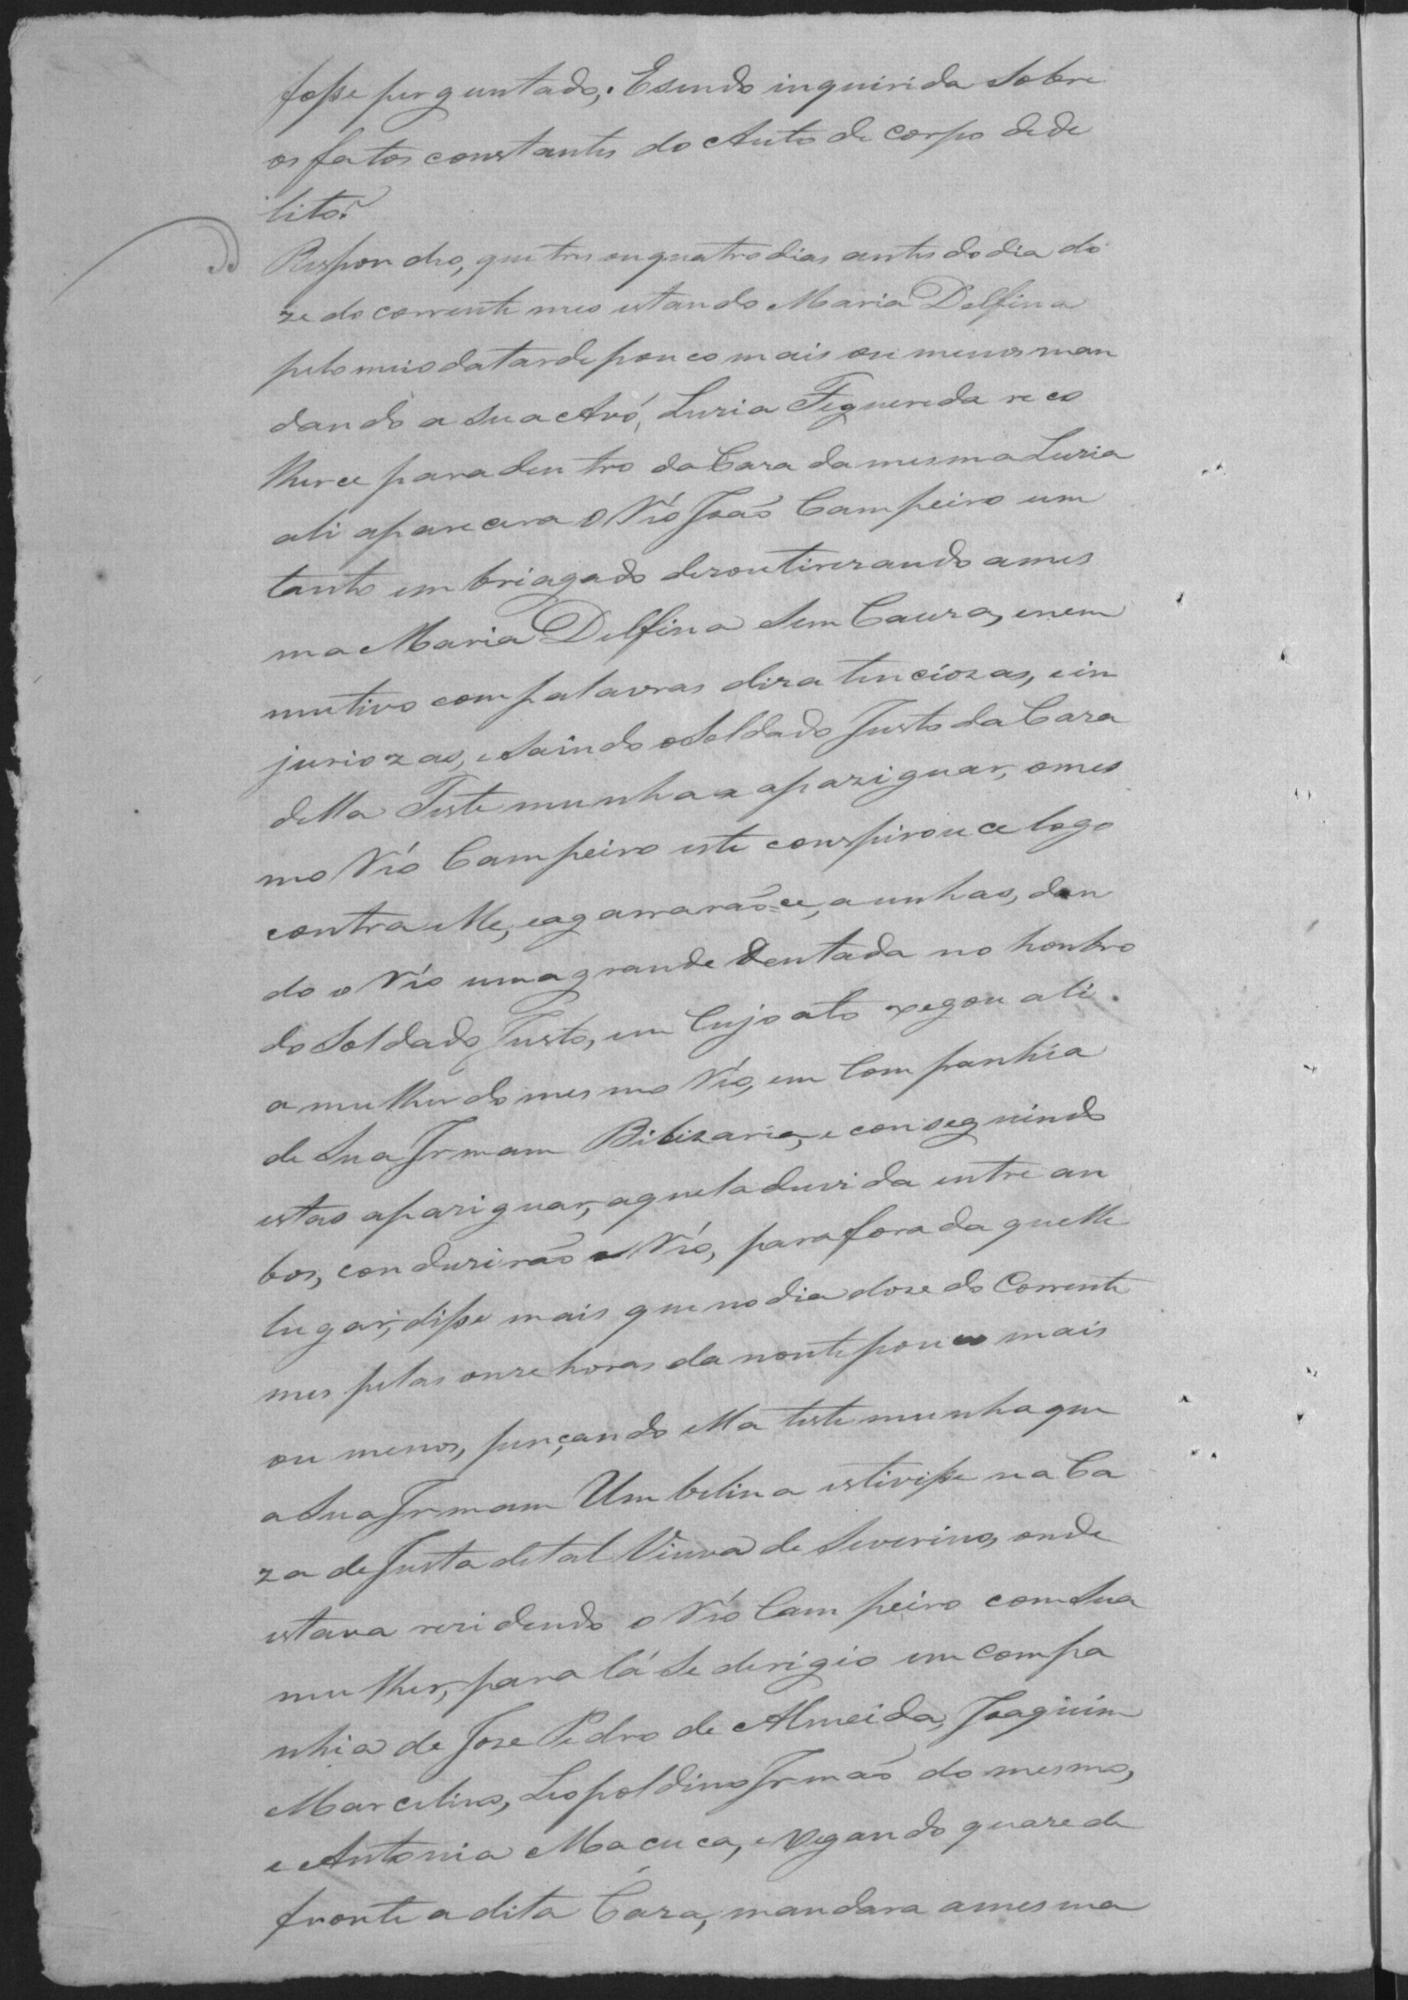 fosse perguntado,. Esendo inquirida sobre
os fatos constantes do Auto de corpo dede
lito?
Respondeo, que tres ou quatro dias antes do dia do
ze do corrente mes estando Maria Delfina
pelo meio da tarde pouco mais ou menos man
dando a sua Avó, Luzia Figuereda reco
lherce para dentro da Caza da mesma Luzia
ali aparecera o Réo João Campeiro um
tanto embriagado desoutirizando a mes
ma Maria Delfina sem Cauza, enem
mutivo com palavras dizatenciozas, ein
juriozas, e Saindo o Soldado Justo da Caza
della Testemunha a apaziguar, o mes
mo Réo Campeiro este conspirouce logo
contra elle, eagarrarãoce, a unhas, dan
do o Réo uma grande dentada no hombro
do Soldado Justo, em Cujo ato xegou ali
a mulher do mesmo Réo, em Companhia
de Sua Irmam Bilizaria, e conseguindo
estas apaziguar, aquela duvida entre an
bos, conduzirão o Réo, para fora daquelle
lugar, disse mais que no dia doze do Corrente
mes pelas onze horas da noute pouco mais
ou menos, pençando ella testemunha que
a Sua Irmam Umbelina estivisse na Ca
za de Justa detal Viuva de Severino, onde
estava rezidindo o Réo Campeiro com Sua
mulher, para lá Se derigio em compa
nhia de Joze Pedro de Almeida, Joaquim
Marcelino, Leopoldino Irmão do mesmo,
e Antonia Macuca, e xegando quaze de
fronte a dita Caza, mandara a mesma